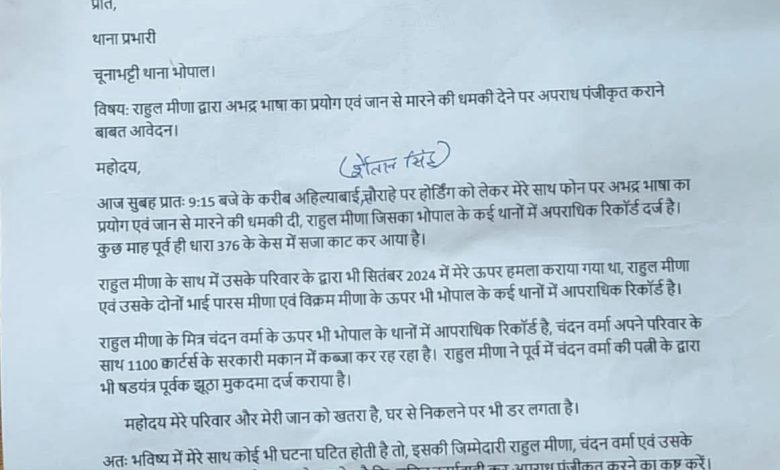 प्रति,
थाना प्रभारी
चूनाभट्टी थाना भोपाल।
विषय: राहुल मीणा द्वारा अभद्र भाषा का प्रयोग एवं जान से मारने की धमकी देने पर अपराध पंजीकृत कराने
बाबत आवेदन।
महोदय,
सिंह)
आज सुबह प्रातः 9:15 बजे के करीब अहिल्याबाई चौराहे पर होर्डिंग को लेकर मेरे साथ फोन पर अभद्र भाषा का
प्रयोग एवं जान से मारने की धमकी दी, राहुल मीणा जिसका भोपाल के कई थानों में अपराधिक रिकॉर्ड दर्ज है।
कुछ माह पूर्व ही धारा 376 के केस में सजा काट कर आया है।
राहुल मीणा के साथ में उसके परिवार के द्वारा भी सितंबर 2024 में मेरे ऊपर हमला कराया गया था, राहुल मीणा
एवं उसके दोनों भाई पारस मीणा एवं विक्रम मीणा के ऊपर भी भोपाल के कई थानों में आपराधिक रिकॉर्ड है।
राहुल मीणा के मित्र चंदन वर्मा के ऊपर भी भोपाल के थानों में आपराधिक रिकॉर्ड है, चंदन वर्मा अपने परिवार के
साथ 1100 क्वार्टर्स के सरकारी मकान में कब्जा कर रह रहा है। राहुल मीणा ने पूर्व में चंदन वर्मा की पत्नी के द्वारा
भी षडयंत्र पूर्वक झूठा मुकदमा दर्ज कराया है।
महोदय मेरे परिवार और मेरी जान को खतरा है, घर से निकलने पर भी डर लगता है।
अतः भविष्य में मेरे साथ कोई भी घटना घटित होती है तो, इसकी जिम्मेदारी राहुल मीणा, चंदन वर्मा एवं उसके
अपराध पंजीकृत करने का कष्ट करें।